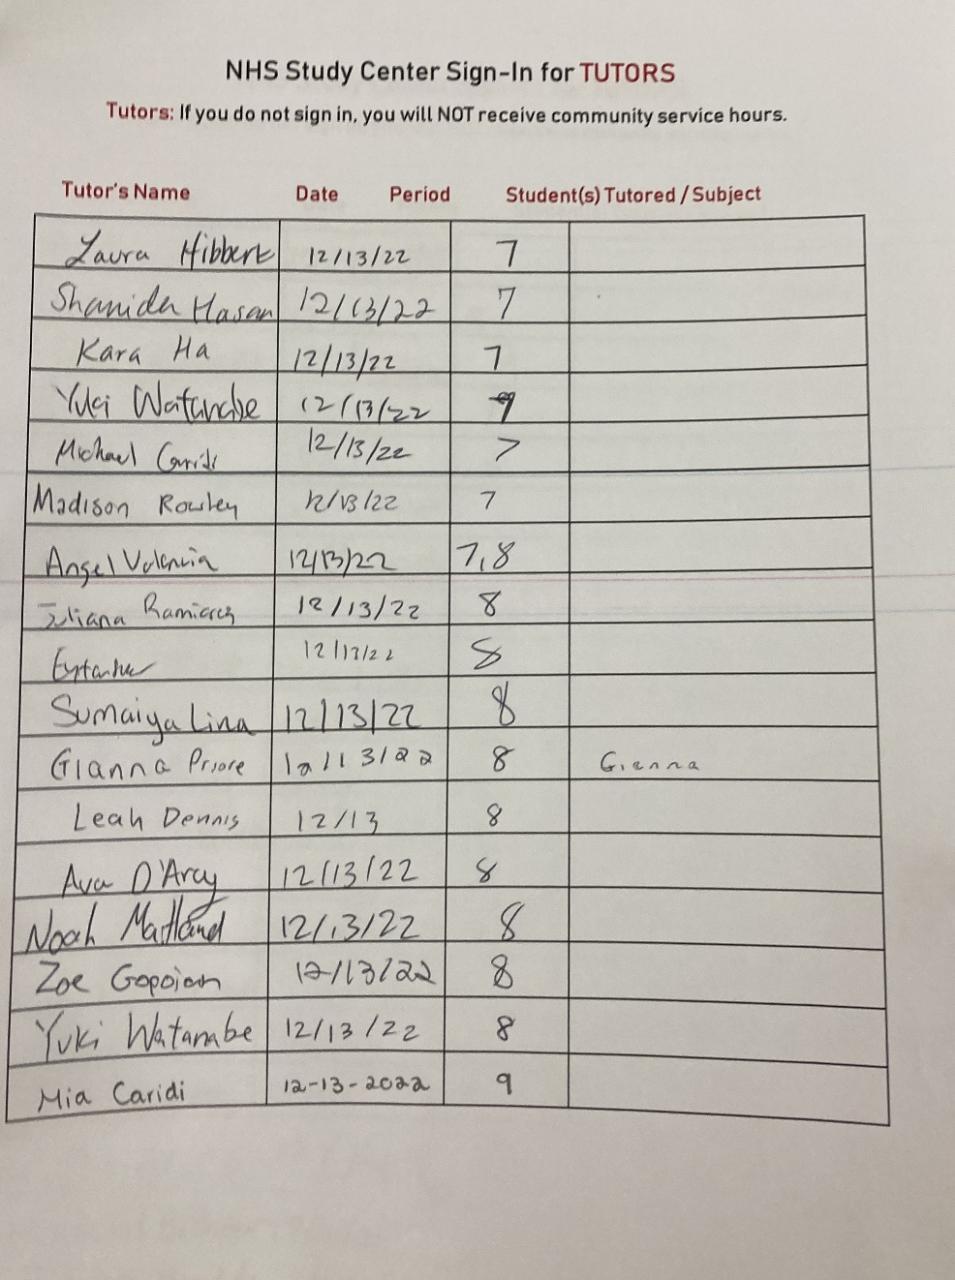 NHS Study Center Sign-In for TUTORS
Tutors: If you do not sign in, you will NOT receive community service hours.
Tutor's Name Date Period Student(s) Tutored / Subject
Laura Hibbert 12/13/22 7
Shanida Hasan 12/13/22 7
Kara Ha 12/13/22 7
Yuki Watanabe 12/13/22
Michael Caridi 12/13/22 7
Madison Rowley 12/13/22 7
Angel Valencia 12/13/22 7,8
Juliana 12/13/22 8
12/13/22 8
Sumaiya Lina 12/13/22 8
Gianna Priore 12/13/22 8 Gianna
Leah Dennis 12/13 8
Ava D'Arcy 12/13/22 8
Noah Maitland 12/13/22 8
Zoe Gopoian 12/13/22 8
Yuki Watanabe 12/13/22 8
Mia Caridi 12-13-2022 9